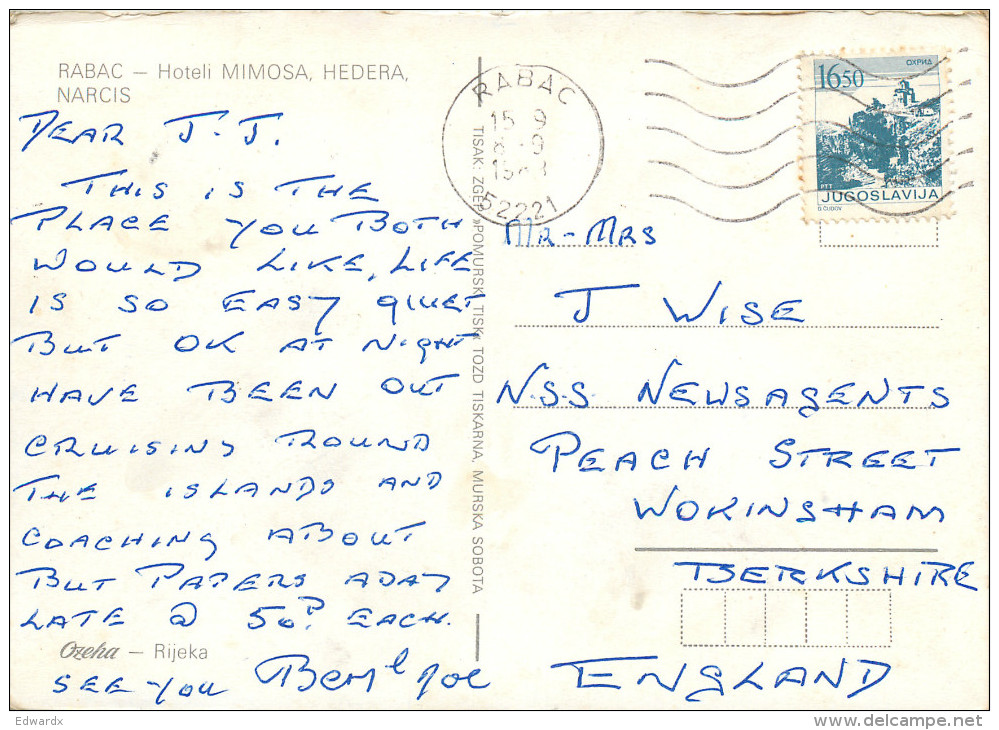 RABAC – Hoteli MIMOSA, HEDERA,
NARCIS
DEAR J.J.
THIS IS THE
PLACE YOU BOTH
WOULD LIKE, LIFE
IS SO EASY QUIET
BUT OK AT NIGHT
HAVE BEEN OUT
CRUISING ROUND
THE ISLANDS AND
COACHING ABOUT
BUT PAPERS ADAY
LATE @ 50P EACH.
Ozeha – Rijeka
SEE YOU
TISAK: ZGEP »POMURSKI TISK« TOZD TISKARNA, MURSKA SOBOTA
RABAC
15 9
52221
1650
ОХРИД
PTT
JUGOSLAVIJA
MR-MRS
J WISE
N.S.S. NEWSAGENTS
PEACH STREET
WOKINGHAM
BERKSHIRE
ENGLAND
Edwardx
www.delcampe.net